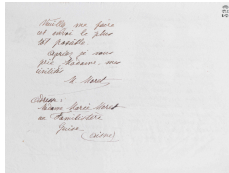 Veuillez me faire
cet envoi le plus
tôt possible.
Agréez je vous
prie Madame, mes
civilités
M. Moret
Adresse:
Madame Marie Moret
au Familistère
Guise
(Aisne)